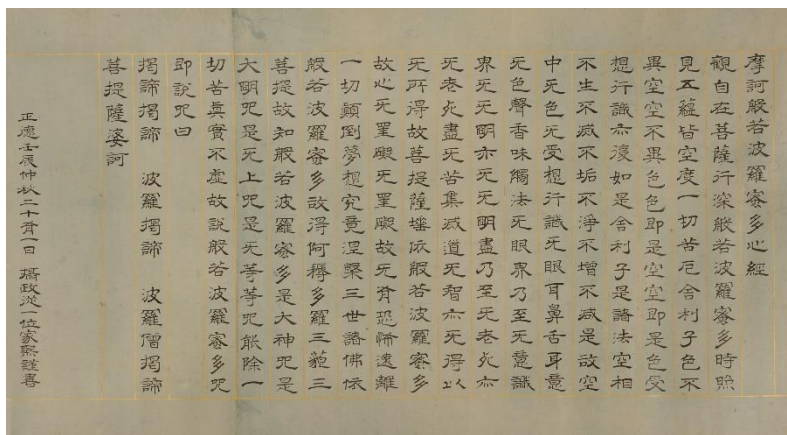 摩訶般若波羅蜜多心經
觀自在菩薩行深般若波羅蜜多時照
見五蘊皆空度一切苦厄舍利子色不
異空空不異色色即是空空即是色受
想行識亦復如是舍利子是諸法空相
不生不滅不垢不淨不增不減是故空
中无色无受想行識无眼耳鼻舌身意
无色聲香味觸法无眼界乃至无意識
界无无明亦无无明盡乃至无老死亦
无老死盡无苦集滅道无智亦无得以
无所得故菩提薩埵依般若波羅蜜多
故心无罣礙无罣礙故无有恐怖遠離
一切顛倒夢想究竟涅槃三世諸佛依
般若波羅蜜多故得阿耨多羅三藐三
菩提故知般若波羅蜜多是大神咒是
大明咒是无上咒是无等等咒能除一
切苦眞實不虛故說般若波羅蜜多咒
即說咒曰
揭諦揭諦　波羅揭諦　波羅僧揭諦
菩提薩婆訶
正悳壬辰仲秋二十有一日　攝政從一位家熙謹書